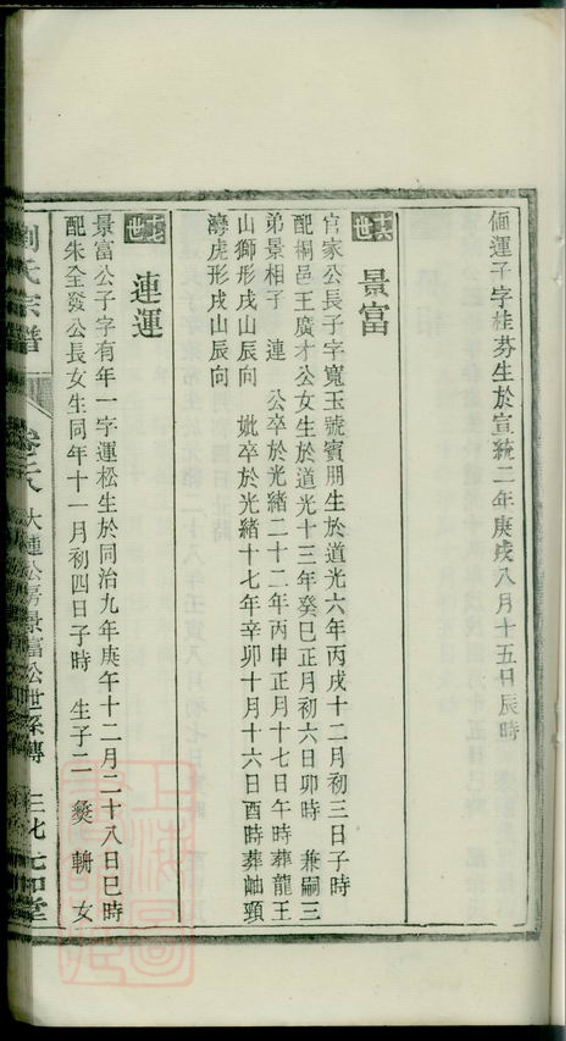 運子字桂芬生於宣統二年庚戌八月十五日辰時
十六世
景富
官家公長子字寬玉號賓朋生於道光六年丙戌十二月初三日子時
配桐邑王廣才公女生於道光十三年癸巳正月初六日卯時 兼嗣三
弟景相子 連 公卒於光緒二十二年丙申正月十七日午時葬龍王
山獅形戌山辰向 妣卒於光緒十七年辛卯十月十六日酉時葬岫頸
灣虎形戌山辰向
十七世
連運
景富公子字有年一字運松生於同治九年庚午十二月二十八日巳時
配朱全發公長女生同年十一月初四日子時 生子二 燮 輈 女
劉氏宗譜 大 公房景富公世系傳